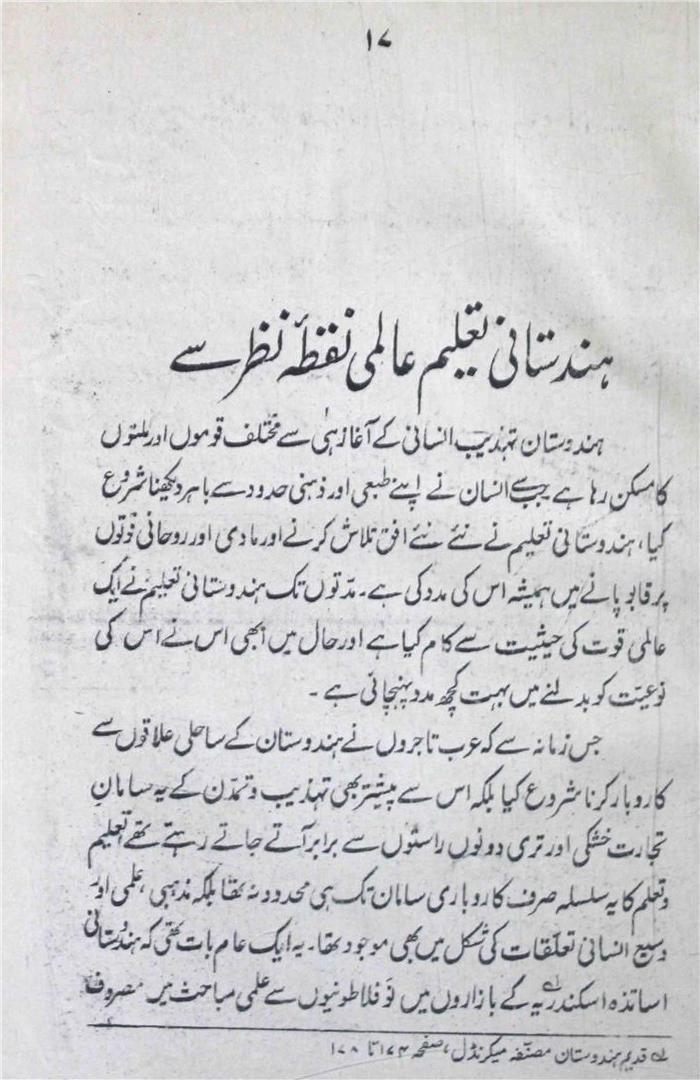 ۱۷
ہندستانی تعلیم عالمی نقطۂ نظر سے
ہندوستان تہذیب انسانی کے آغاز ہی سے مختلف قوموں اور ملتوں
کا مسکن رہا ہے جب سے انسان نے اپنے طبعی اور ذہنی حدود سے باہر دیکھنا شروع
کیا، ہندوستانی تعلیم نے نئے نئے افق تلاش کرنے اور مادی اور روحانی قوتوں
پر قابو پانے میں ہمیشہ اس کی مدد کی ہے۔ مدتوں تک ہندوستانی تعلیم نے ایک
عالمی قوت کی حیثیت سے کام کیا ہے اور حال میں ابھی اس نے اس کی
نوعیت کو بدلنے میں بہت کچھ مدد پہنچائی ہے۔
جس زمانہ سے کہ عرب تاجروں نے ہندوستان کے ساحلی علاقوں سے
کاروبار کرنا شروع کیا بلکہ اس سے پیشتر بھی تہذیب و تمدّن کے یہ سامانِ
تجارت خشکی اور تری دونوں راستوں سے برابر آتے جاتے رہتے تھے تعلیم
و تعلم کا یہ سلسلہ صرف کاروباری سامان تک ہی محدود نہ تھا بلکہ مذہبی، علمی اور
وسیع انسانی تعلّقات کی شکل میں بھی موجود تھا۔ یہ ایک عام بات تھی کہ ہندوستانی
اساتذہ اسکندریہ لہ کے بازاروں میں نَو فلاطونیوں سے علمی مباحث میں مصروف
لہ قدیم ہندوستان مصنّفہ میکرنڈل، صفحہ ۱۷۴ تا ۱۷۸